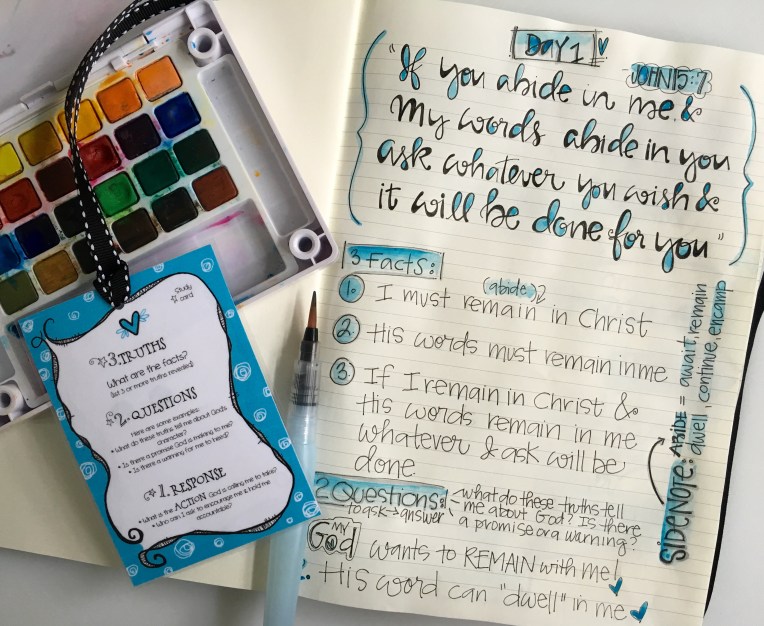 Study
card
3. TRUTHS
What are the facts?
(list 3 or more truths revealed)
2. QUESTIONS
Here are some examples:
• What do these truths tell me about God's
character?
• Is there a promise God is making to me?
• Is there a warning for me to heed?
1. RESPONSE
• What is the ACTION God is calling me to take?
• Who can I ask to encourage me & hold me
accountable?
Day 1
JOHN 15:7
"If you abide in me &
my words abide in you
ask whatever you wish &
it will be done for you"
3 Facts:
(abide)
1. I must remain in Christ
2. His words must remain in me
3. If I remain in Christ &
His words remain in me
whatever I ask will be
done
SIDENOTE: ABIDE = await, remain
dwell, continue, encamp
2 Questions:
to ask + answer
what do these truths tell
me about God? Is there
a promise or a warning?
MY
God wants to REMAIN with me!
His word can "dwell" in me